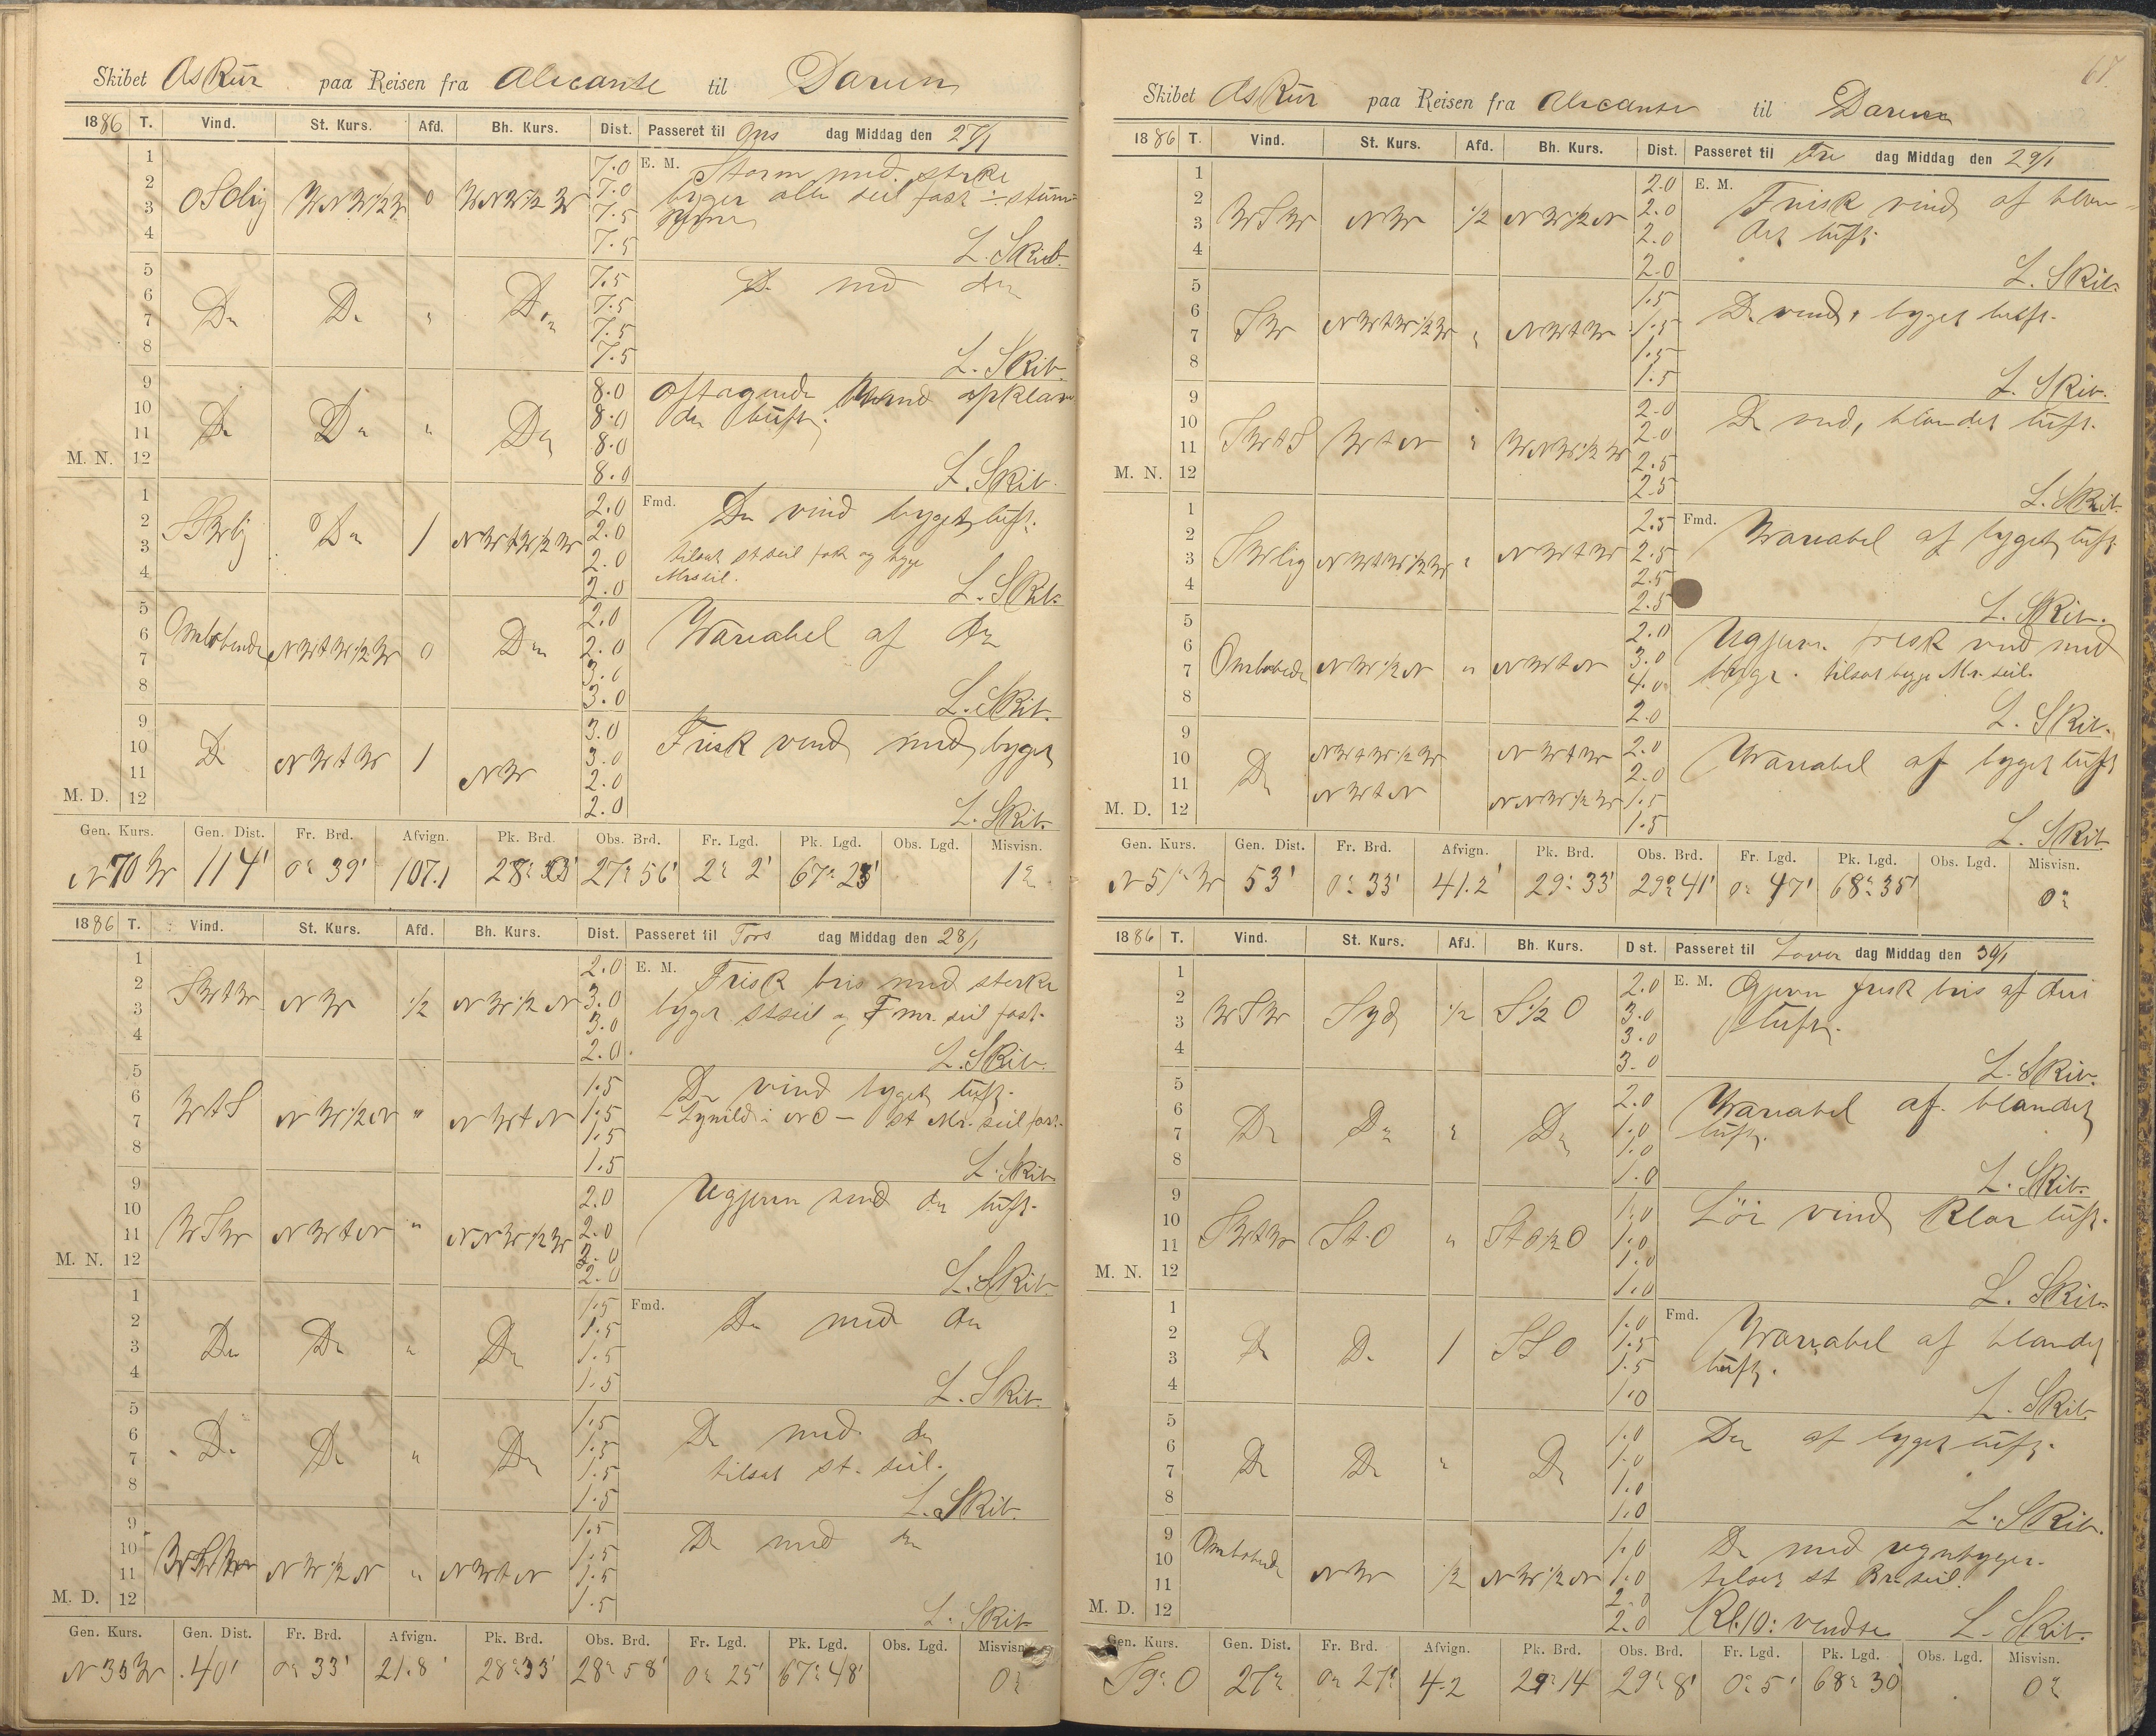 Skibet Askur paa Reisen fra Alicante til Darien
1886 T. Vind. St. Kurs. Afd. Bh. Kurs. Dist. Passeret til Ons dag Middag den 27/1
1 7.0 E. M. Storm med sterke
2 OSOlig WNW1/2W 0 WNW1/2W 7.0 byger alle seil fast ÷ stum-
3 7.5
4 7.5 L. Skib.
5 7.5 Do med do
6 Do Do " Do 7.5
7 7.5
8 7.5 L. Skib.
9 8.0 Aftagende Vind opklaren
10 Do Do " Do 8.0 de luft.
11 8.0
M. N. 12 8.0 L. Skib.
1 2.0 Fmd. Do vind byget luft.
2 SWlig Do 1 NWtW1/2W 2.0
3 2.0 tilsat st seil fok og begge
4 2.0 Mrsseil. L. Skib.
5 2.0 Variabel af do
6 Omløbende NWtW1/2W 0 Do 2.0
7 3.0
8 3.0 L. Skib.
9 3.0 Frisk vind med byget
10 Do NWtW 1 NW 3.0
11 2.0
M. D. 12 2.0 L. Skib.
Gen. Kurs. Gen. Dist. Fr. Brd. Afvign. Pk. Brd. Obs. Brd. Fr. Lgd. Pk. Lgd. Obs. Lgd. Misvisn.
N70W 114' 0° 39' 107.1 28° 33' 27° 56' 2° 2' 67° 23' 1°
1886 T. Vind. St. Kurs. Afd. Bh. Kurs. Dist. Passeret til Tors dag Middag den 28/1
1 2.0 E. M. Frisk bris med sterke
2 SWtW NW 1/2 NW1/2N 3.0 byger stseil og F mr. seil fast.
3 3.0
4 2.0 L. Skib.
5 1.5 Do vind byget luft.
6 WtS NW1/2N " NWtN 1.5 - Lynild i NO - st Mr. seil fast.
7 1.5
8 1.5 L. Skib.
9 2.0 Ugjevn vind do luft.
10 WSW NWtN " NNW1/2W 2.0
11 2.0
M. N. 12 2.0 L. Skib.
1 1.5 Fmd. Do med do
2 Do Do " Do 1.5
3 1.5
4 1.5 L. Skib.
5 1.5 Do med do
6 Do Do " Do 1.5 tilsat st. seil.
7 1.5
8 1.5 L. Skib.
9 1.5 Do med do
10 WSW NW1/2N " NWtN 1.5
11 1.5
M. D. 12 1.5 L. Skib.
Gen. Kurs. Gen. Dist. Fr. Brd. Afvign. Pk. Brd. Obs. Brd. Fr. Lgd. Pk. Lgd. Obs. Lgd. Misvisn.
N33W 40' 0° 33' 21.8' 28° 33' 28° 58' 0° 25' 67° 48' 0°
67.
Skibet Askur paa Reisen fra Alicante til Darien
1886 T. Vind. St. Kurs. Afd. Bh. Kurs. Dist. Passeret til Fre dag Middag den 29/1
1 2.0 E. M. Frisk vind af blan-
2 WSW NW 1/2 NW1/2N 2.0 det luft.
3 2.0
4 2.0 L. Skib.
5 1.5 Do vind, byget luft.
6 SW NWtW1/2W " NWtW 1.5
7 1.5
8 1.5 L. Skib.
9 2.0 Do vind, blandet luft.
10 SWtS WtN " WNW1/2W 2.0
11 2.5
M. N. 12 2.5 L. Skib.
1 2.5 Fmd. Variabel af byget luft
2 SWlig NWtW1/2W " NWtW 2.5
3 2.5
4 2.5 L. Skib.
5 2.0 Ugjevn frisk vind med
6 Omløbende NW1/2N " NWtN 3.0 byge. tilsat begge Mr. seil.
7 4.0
8 2.0 L. Skib.
9 2.0 Variabel af byget luft
10 Do NWtW1/2W NWtW 2.0
11 NWtN NNW1/2W 1.5
M. D. 12 1.5 L. Skib.
Gen. Kurs. Gen. Dist. Fr. Brd. Afvign. Pk. Brd. Obs. Brd. Fr. Lgd. Pk. Lgd. Obs. Lgd. Misvisn.
N51°W 53' 0° 33' 41.2' 29° 33' 29° 41' 0° 47' 68° 35' 0°
1886 T. Vind. St. Kurs. Afd. Bh. Kurs. Dist. Passeret til Løver dag Middag den 30/1
1 2.0 E. M. Ogjevn frisk bris af dis
2 WSW Syd 1/2 S1/2O 3.0 luft.
3 3.0
4 3.0 L. Skib.
5 2.0 Variabel af blandet
6 Do Do " Do 1.0 luft.
7 1.0
8 1.0 L. Skib.
9 1.0 Lör vind klar luft.
10 SWtW StO " StO1/2O 1.0
11 1.0
M. N. 12 1.0 L. Skib.
1 1.0 Fmd. Variabel af blandet
2 Do Do 1 SSO 1.5 luft.
3 1.5
4 1.0 L. Skib.
5 1.0 Do af byget luft.
6 Do Do " Do 1.0
7 1.0
8 1.0 L. Skib.
9 1.0 Do med regnbyger.
10 Omløbende NW 1/2 NW1/2N 1.0 tilsat st Br. seil.
11 2.0
M. D. 12 2.0 Kl. 10: vendte L. Skib.
Gen. Kurs. Gen. Dist. Fr. Brd. Afvign. Pk. Brd. Obs. Brd. Fr. Lgd. Pk. Lgd. Obs. Lgd. Misvisn.
S9°O 27' 0° 27' 4.2 29° 14 29° 8' 0° 5' 68° 30' 0°